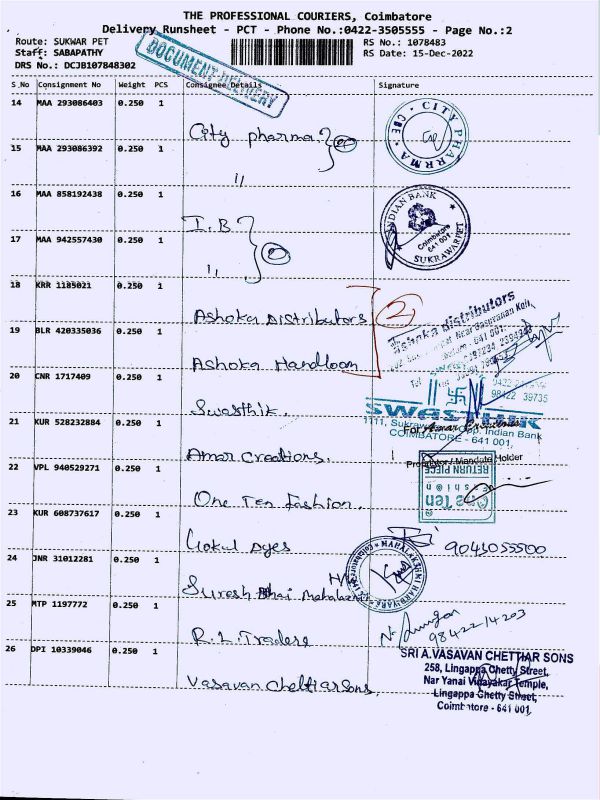 THE PROFESSIONAL COURIERS, Coimbatore
Delivery Runsheet - PCT - Phone No.:0422-3505555 - Page No.:2
Route: SUKWAR PET
RS No.: 1078483
Staff: SABAPATHY
RS Date: 15-Dec-2022
DRS No.: DCJB107848302
DOCUMENT DELIVERY
S_No Consignment No Weight PCS Consignee Details Signature
14 MAA 293086403 0.250 1 City pharma 2
CITY PHARMA CBE
15 MAA 293086392 0.250 1 ,,
16 MAA 858192438 0.250 1 I.B 2
INDIAN BANK Coimbatore 641 001. SUKRAWARPET
17 MAA 942557430 0.250 1 ,,
18 KRR 1185021 0.250 1 Ashoka Distributors 2
Ashoka Distributors
19 BLR 420335036 0.250 1 Ashoka Handloom
20 CNR 1717409 0.250 1 Swasthik.
98422 39735
SWASTHIK
1111, Sukrawar Opp. Indian Bank
COIMBATORE - 641 001.
21 KUR 528232884 0.250 1 Amar Creations.
For Amar Creations
Proprietor / Mandate Holder
22 VPL 940529271 0.250 1 One Ten Fashion.
One Ten
Fashion
RETURN PIECE
23 KUR 608737617 0.250 1 Gokul Dyes
9043055500
24 JNR 31012281 0.250 1 Suresh Bhai Mahalaxmi H/W
MAHALAKSHMI HARDWARE
25 MTP 1197772 0.250 1 R.L. Traders
98422 14203
26 DPI 10339046 0.250 1 Vasavan Chettiar Sons.
SRI A.VASAVAN CHETTIAR SONS
258, Lingappa Chetty Street,
Nar Yanai Vinayakar Temple,
Lingappa Chetty Street,
Coimbatore - 641 001.